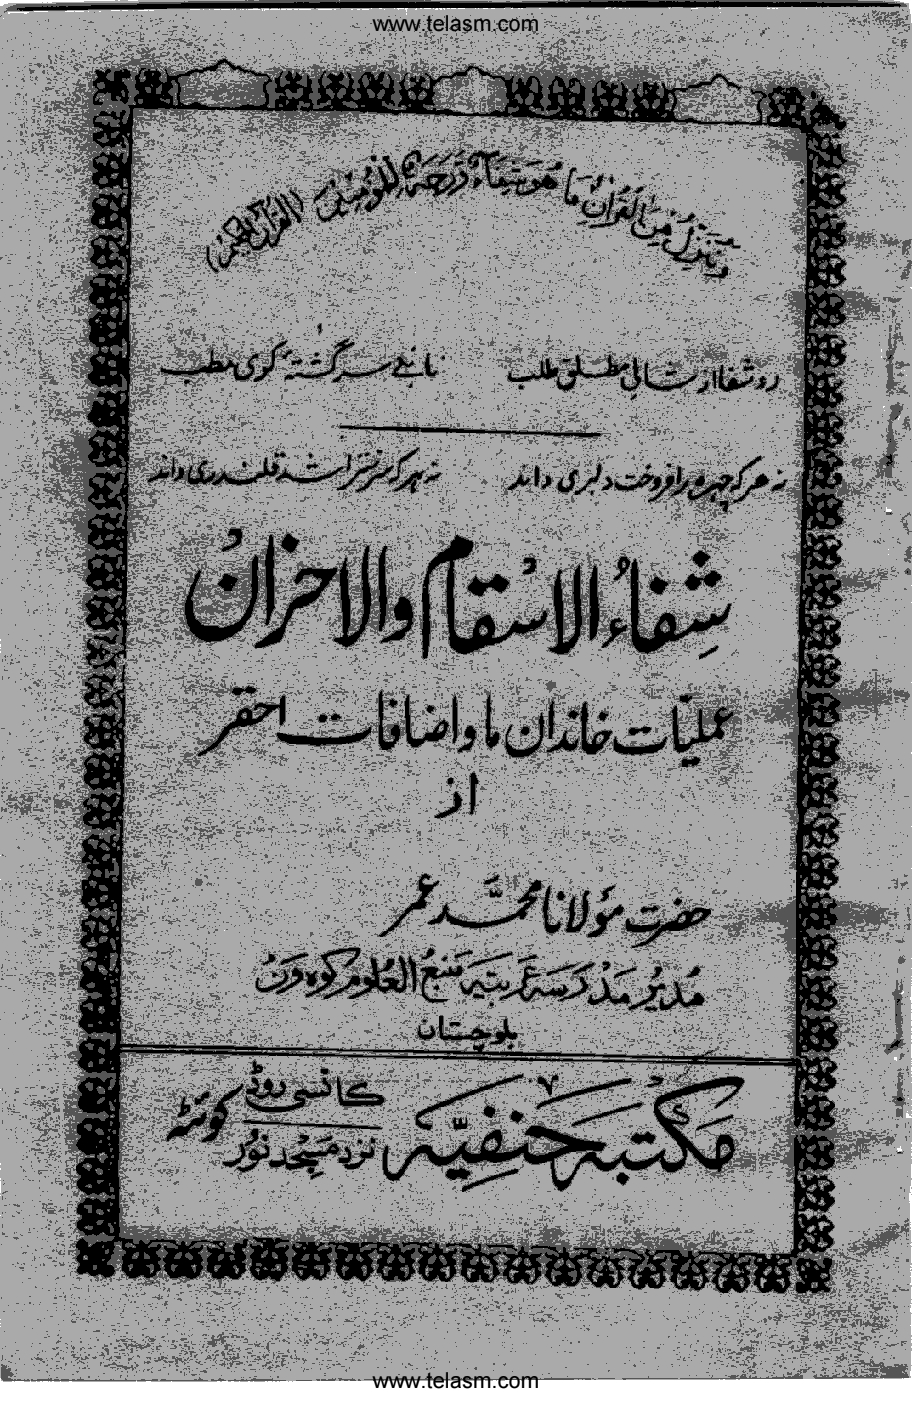 www.telasm.com
وَنُنَزِّلُ مِنَ الْقُرْآنِ مَا هُوَ شِفَاءٌ وَّرَحْمَةٌ لِّلْمُؤْمِنِيْنَ (القرآن الحكيم)
رو شفا از شافیِ مطلق طلب تا بکے سرگشتۂ گردی مطب
نہ ہر کہ چہرہ برافروخت دلبری داند نہ ہر کہ سر بتراشد قلندری داند
شِفاءُ الاسْقام والاحزانْ
عملیّات خاندان ما و اضافات احقر
از
حضرت مولانا محمّد عمر
مُدیر مَدْرَسہ عَرَبیّہ مَنبعُ العُلوم کوہ ونْ
بلوچستان
مکتبہ حَنفِیّہ کانسی روڈ نزد مَسْجد نُور کوئٹہ
www.telasm.com